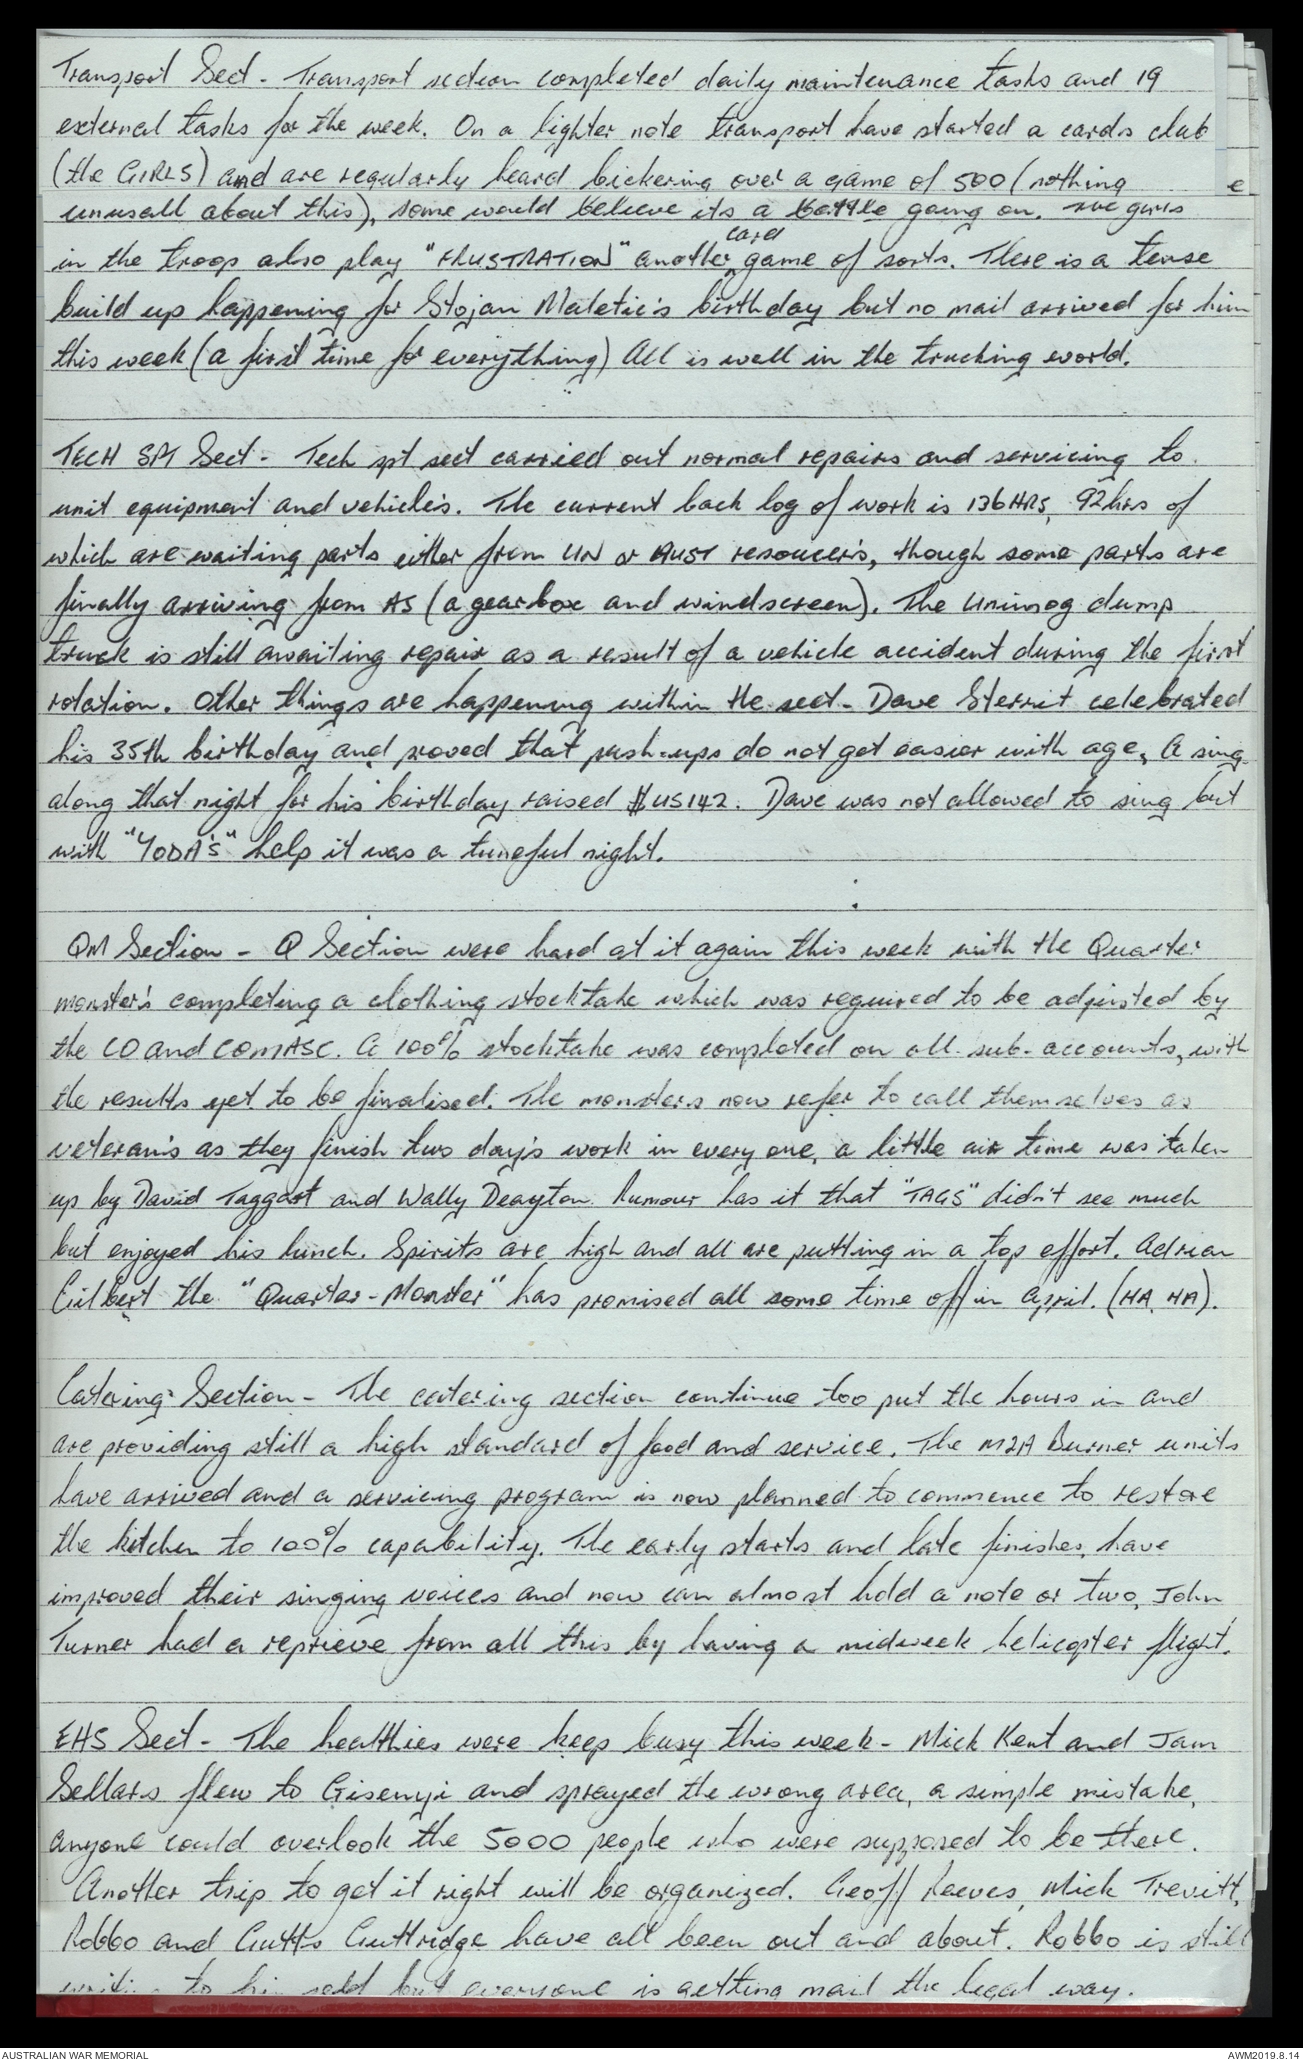 Transport Sect - Transport section completed daily maintenance tasks and 19
external tasks for the week. On a lighter note transport have started a cards club
(the GIRLS) and are regularly heard bickering over a game of 500 (nothing
unusall about this), some would believe its a battle going on. The girls
in the troop also play "FRUSTRATION" another card game of sorts. There is a tense
build up happening for Stojan Maletic's birthday but no mail arrived for him
this week (a first time for everything) All is well in the trucking world.
TECH SPT Sect - Tech spt sect carried out normal repairs and servicing to
unit equipment and vehicle's. The current back log of work is 136HRS, 92hrs of
which are waiting parts either from UN or AUST resoucer's, though some parts are
finally arriving from AS (a gearbox and windscreen). The Unimog dump
truck is still awaiting repair as a result of a vehicle accident during the first
rotation. Other things are happening within the sect - Dave Sterrit celebrated
his 35th birthday and proved that push-ups do not get easier with age, A sing
along that night for his birthday raised $US142. Dave was not allowed to sing but
with "YODA'S" help it was a tuneful night.
QM Section - Q Section were hard at it again this week with the Quarter
monster's completing a clothing stocktake which was required to be adjusted by
the CO and COMASC. A 100% stocktake was completed on all sub-accounts, with
the results yet to be finalised. The monsters now refer to call themselves as
veteran's as they finish two day's work in every one, a little air time was taken
up by David Taggart and Wally Deayton. Rumour has it that "TAGS" didn't see much
but enjoyed his lunch. Spirits are high and all are putting in a top effort. Adrian
Gilbert the "Quarter-Monster" has promised all some time off in April. (HA, HA).
Catering Section - The catering section continue too put the hours in and
are providing still a high standard of food and service. The M2A Burner units
have arrived and a servicing program is now planned to commence to restore
the kitchen to 100% capability. The early starts and late finishes, have
improved their singing voices and now can almost hold a note or two, John
Turner had a reprieve from all this by having a midweek helicopter flight.
EHS Sect - The healthies were keep busy this week - Mick Kent and Jam
Sellars flew to Gisenyi and sprayed the wrong area, a simple mistake,
anyone could overlook the 5000 people who were supposed to be there.
Another trip to get it right will be organized. Geoff Reeves, Mick Trevitt,
Robbo and Gutts Guttridge have all been out and about. Robbo is still
to but everyone is getting mail the legal way.
e
AUSTRALIAN WAR MEMORIAL
AWM2019.8.14